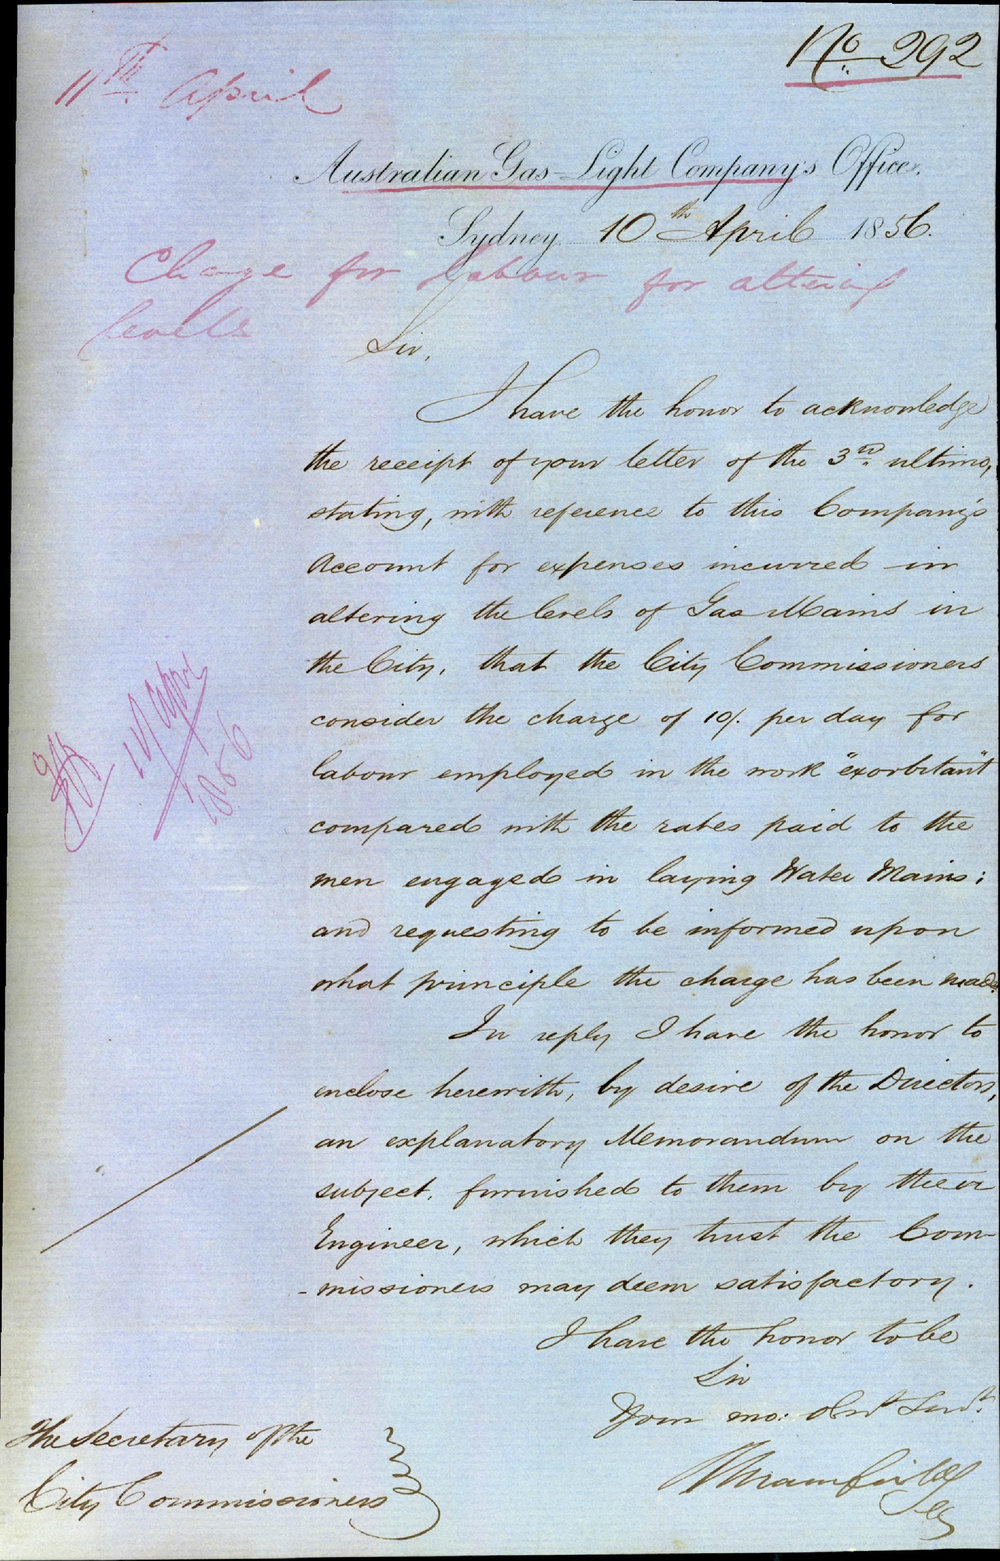 No. 292
11th. April
Australian Gas-Light Company's Office,
Sydney 10th April 1856.
Charge for labour for altering
levels
Sir,
I have the honor to acknowledge
the receipt of your letter of the 3rd. ultimo,
stating, with reference to this Company's
Account for expenses incurred in
altering the levels of Gas Mains in
the City, that the City Commissioners
consider the charge of 10/. per day for
labour employed in the work "exorbitant"
compared with the rates paid to the
men engaged in laying Water Mains;
and requesting to be informed upon
what principle the charge has been made.
In reply I have the honor to
enclose herewith, by desire of the Directors,
an explanatory Memorandum on the
subject, furnished to them by their
Engineer, which they trust the Com-
-missioners may deem satisfactory.
I have the honor to be
Sir
Your mo: Obnt Servt.
Secy
The Secretary of the
City Commissioners
April
1856